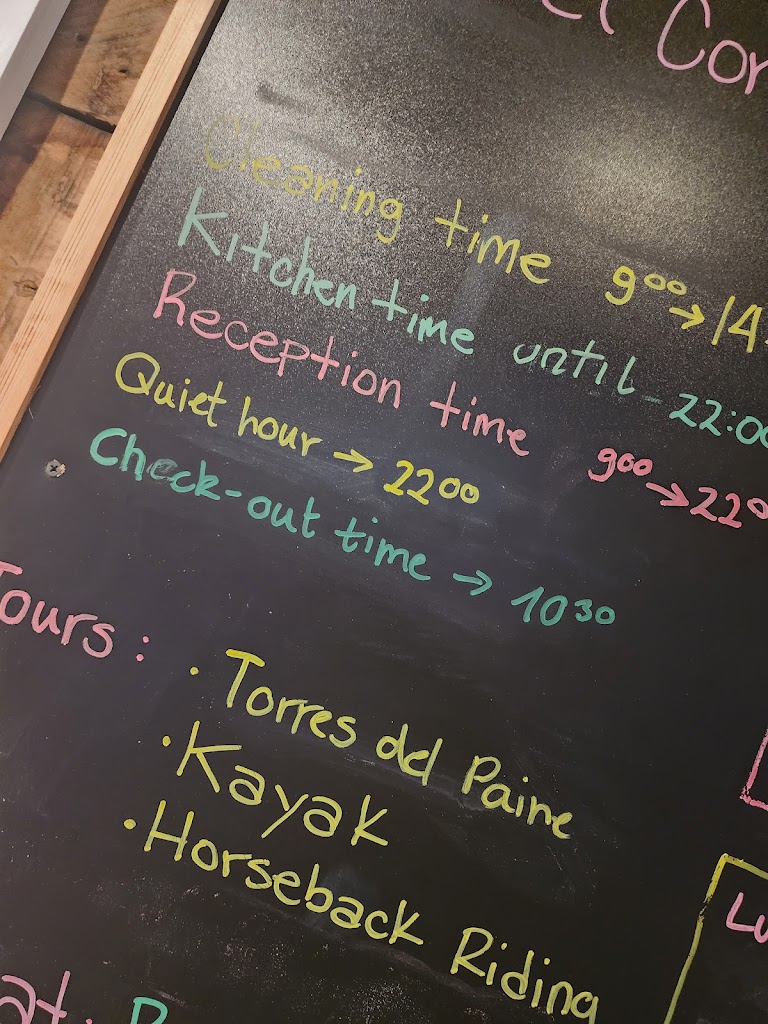 Cor
Cleaning time 9⁰⁰→14
Kitchen time until 22:00
Reception time 9⁰⁰→22⁰
Quiet hour → 22⁰⁰
Check-out time → 10³⁰
Tours:
· Torres del Paine
· Kayak
· Horseback Riding
Lu
at: